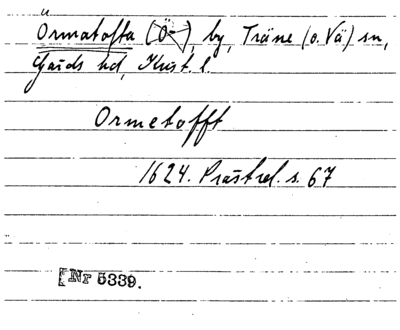 Örmatofta (Ö-), by, Träne (o. Vä) sn,
Gärds hd, Krist. l.
Ormetofft
1624. Prästrel. s. 67
[Nr 5339.